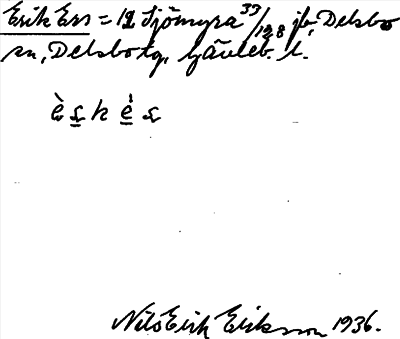 Erik Ers = 12 Sjömyra 33/128 jb, Delsbo
sn, Delsbo tg, Gävleb. l.
è s k é s
Nils Erik Eriksson 1936.